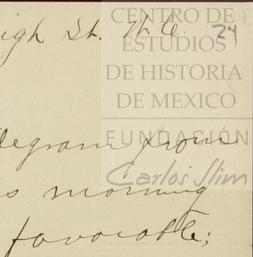 CENTRO DE
ESTUDIOS
DE HISTORIA
DE MEXICO
FUNDACIÓN
Carlos Slim
24
igh St. W.C.
legram from
s morning
favorable;